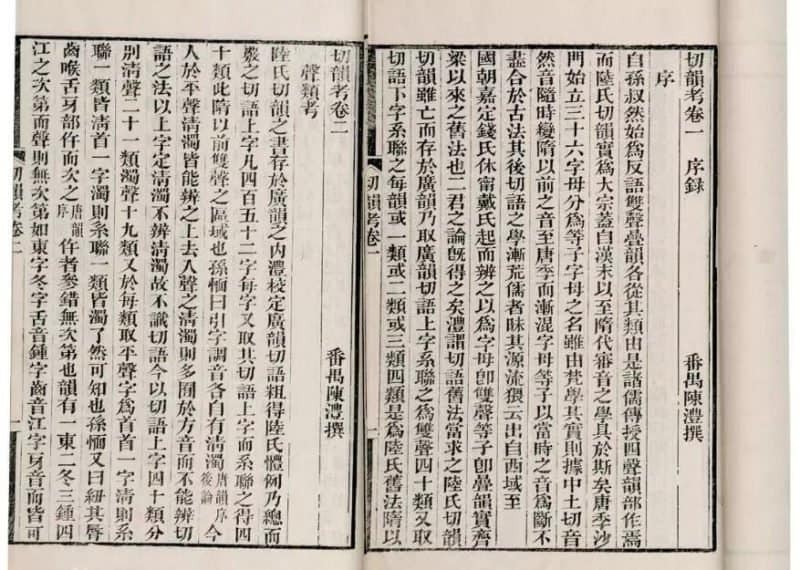 切韻考卷一 序錄
番禺陳澧撰
序
自孫叔然始為反語雙聲疊韻各從其類由是諸儒傳授四聲韻部作焉
而陸氏切韻實為大宗蓋自漢末以至隋代審音之學具於斯矣唐季沙
門始立三十六字母分為等子字母之名雖由梵學其實則據中土切音
然音隨時變隋以前之音至唐季而漸混字母等子以當時之音為斷不
盡合於古法其後切語之學漸荒儒者昧其源流猥云出自西域至
國朝嘉定錢氏休甯戴氏起而辨之以為字母卽雙聲等子卽疊韻實齊
梁以來之舊法也二君之論旣得之矣澧謂切語舊法當求之陸氏切韻
切韻雖亡而存於廣韻乃取廣韻切語上字系聯之為雙聲四十類又取
切語下字系聯之每韻或一類或二類或三類四類是為陸氏舊法隋以
切韻考卷一
一
切韻考卷二
番禺陳澧撰
聲類考
陸氏切韻之書存於廣韻之內澧校定廣韻切語粗得陸氏體例乃總而
覈之切語上字凡四百五十二字每字又取其切語上字而系聯之得四
十類此隋以前雙聲之區域也孫愐曰引字調音各自有清濁唐韻序後論今
人於平聲清濁皆能辨之上去入聲之清濁則多囿於方音而不能辨切
語之法以上字定清濁不辨清濁故不識切語今以切語上字四十類分
別清聲二十一類濁聲十九類又於每類取平聲字為首首一字清則系
聯一類皆清首一字濁則系聯一類皆濁了然可知也孫愐又曰紐其脣
齒喉舌牙部仵而次之唐韻序仵者參錯無次第也韻有一東二冬三鍾四
江之次第而聲則無次第如東字冬字舌音鍾字齒音江字牙音而皆可
切韻考卷二
一